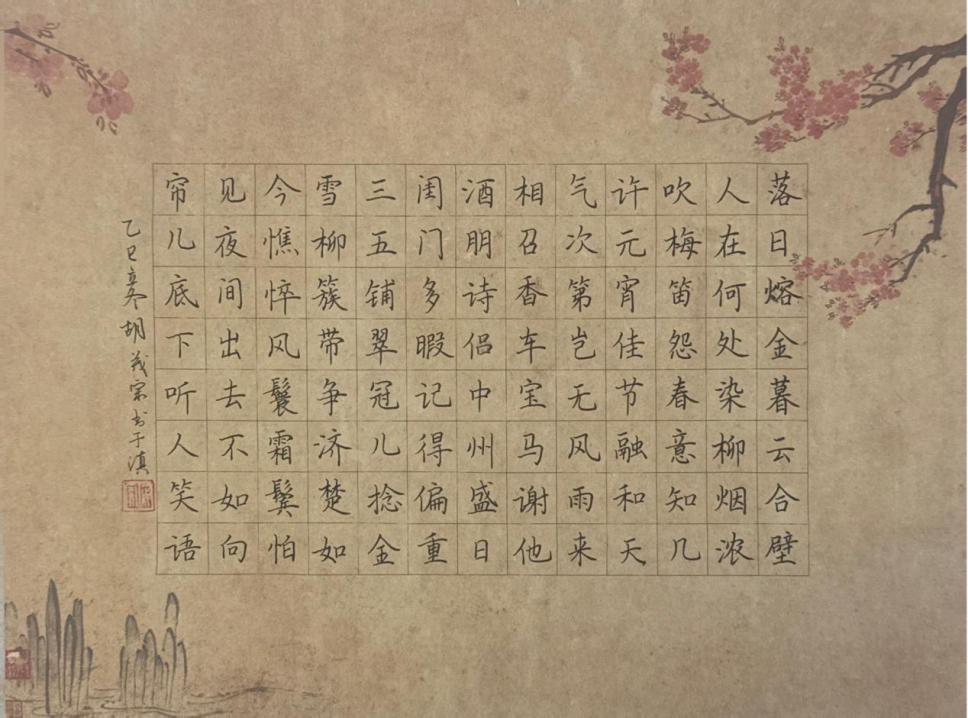 落日熔金暮云合壁
人在何处染柳烟浓
吹梅笛怨春意知几
许元宵佳节融和天
气次第岂无风雨来
相召香车宝马谢他
酒朋诗侣中州盛日
闺门多暇记得偏重
三五铺翠冠儿捻金
雪柳簇带争济楚如
今憔悴风鬟霜鬓怕
见夜间出去不如向
帘儿底下听人笑语
乙巳胡茂宗书于滇